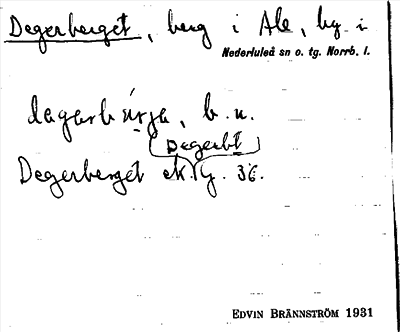 Degerberget, berg i Ale, by i
Nederluleå sn o. tg. Norrb. l.
dagarbärja, b. u.
(Degerbt)
Degerberget ek. G. 36.
EDVIN BRÄNNSTRÖM 1931